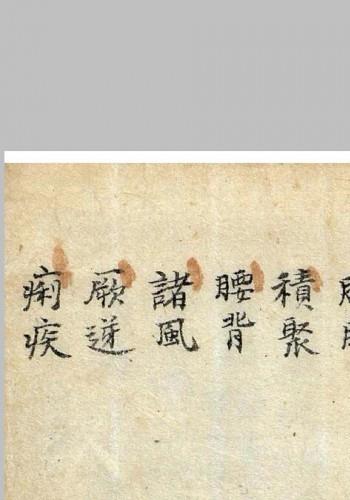 積聚
腰背
諸風
厥逆
痢疾